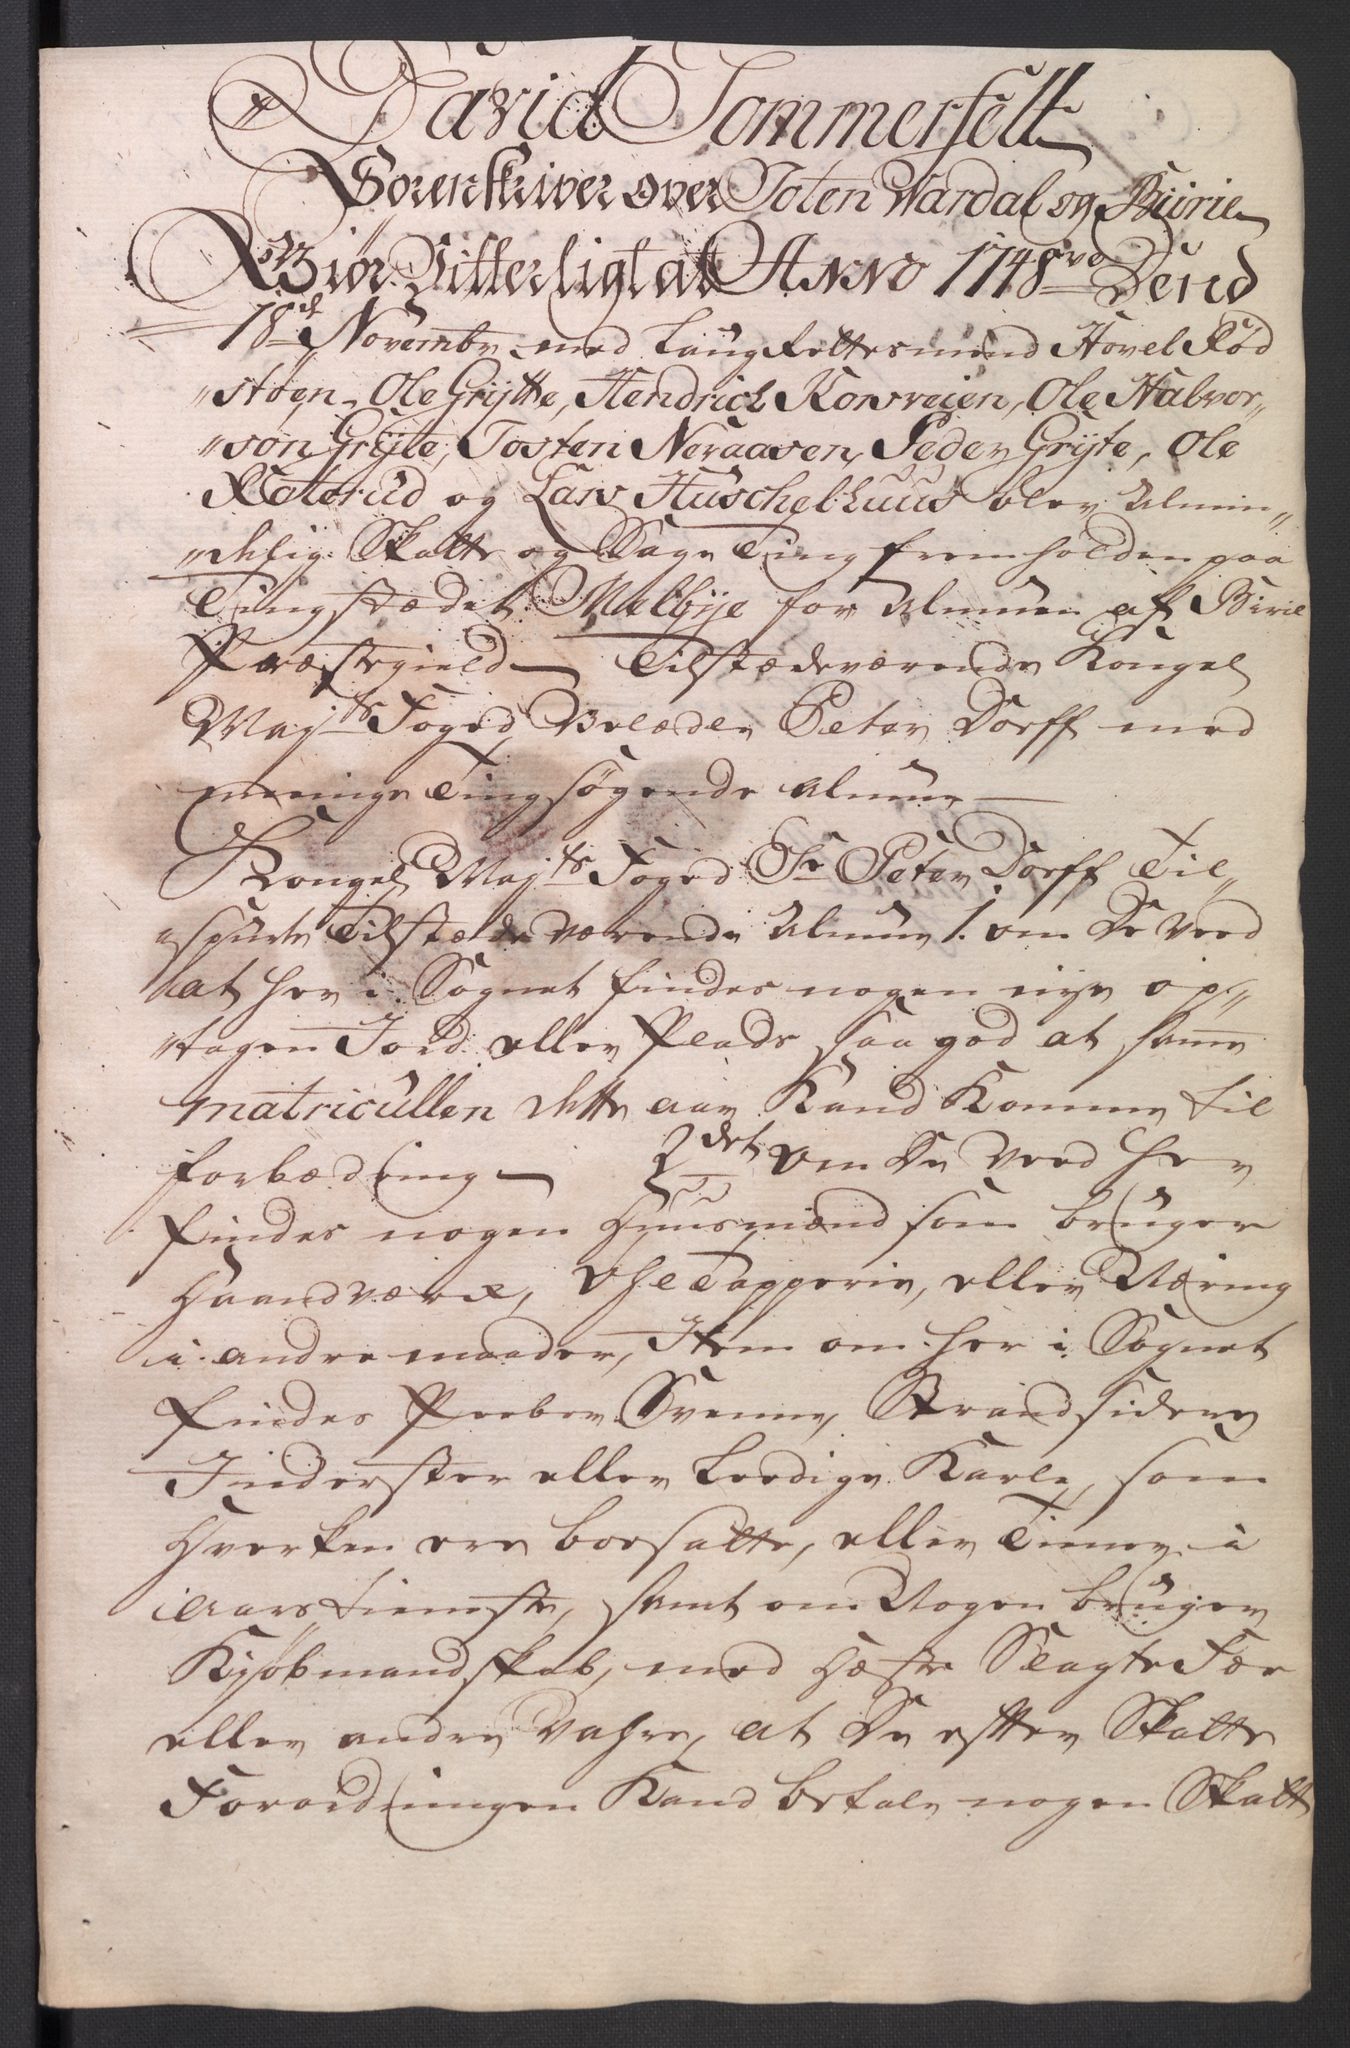 David Sommerfelt
Sorenskriver over Toten Wardal og Biirie
Giør Vitterligt at Anno 1748ve Dend
18de Novembr med Laugrettesmend Hovel Rød
støen, Ole Grytte, Hendrich Korsveien, Ole Halvor-
søn Gryte, Tosten Neraasen, Peder Gryte, Ole
Raterud og Lars Huschelhuus blev Almin-
delig Skatte og Sage Ting fremholden paa
Tingstædet Melbye for Almuen af Birie
Præstegield – Tilstædeværende Kongel
Maj:ts Foged Velædle Peter Dorff med
meenige Tingsøgende Almue –
Kongel Maj:ts Foged Sr Peter Dorff Til
spurte Tilstædeværende Almue 1. om De veed
at her i Sognet findes nogen nye op-
tagen Jord eller Plads saa god at samme
matricullen dette aar Kand Komme til
forbædring – 2det Om De veed her
findes nogen Huusmænd som bruger
Haandværk, Øhltapperie, eller Næring
i andre maader, Item om her i Sognet
findes Peeber Svenne, Strandsiddere
Inderster eller Leedige Karle, som
Hverken ere boesatte, eller Tiener i
aars tieneste, samt om Nogen bruger
Kjøbmandskab, med Heste Slagte Fæe
eller andre Vahre, at De efter Skatte
Forordningen Kand betale nogen Skatt